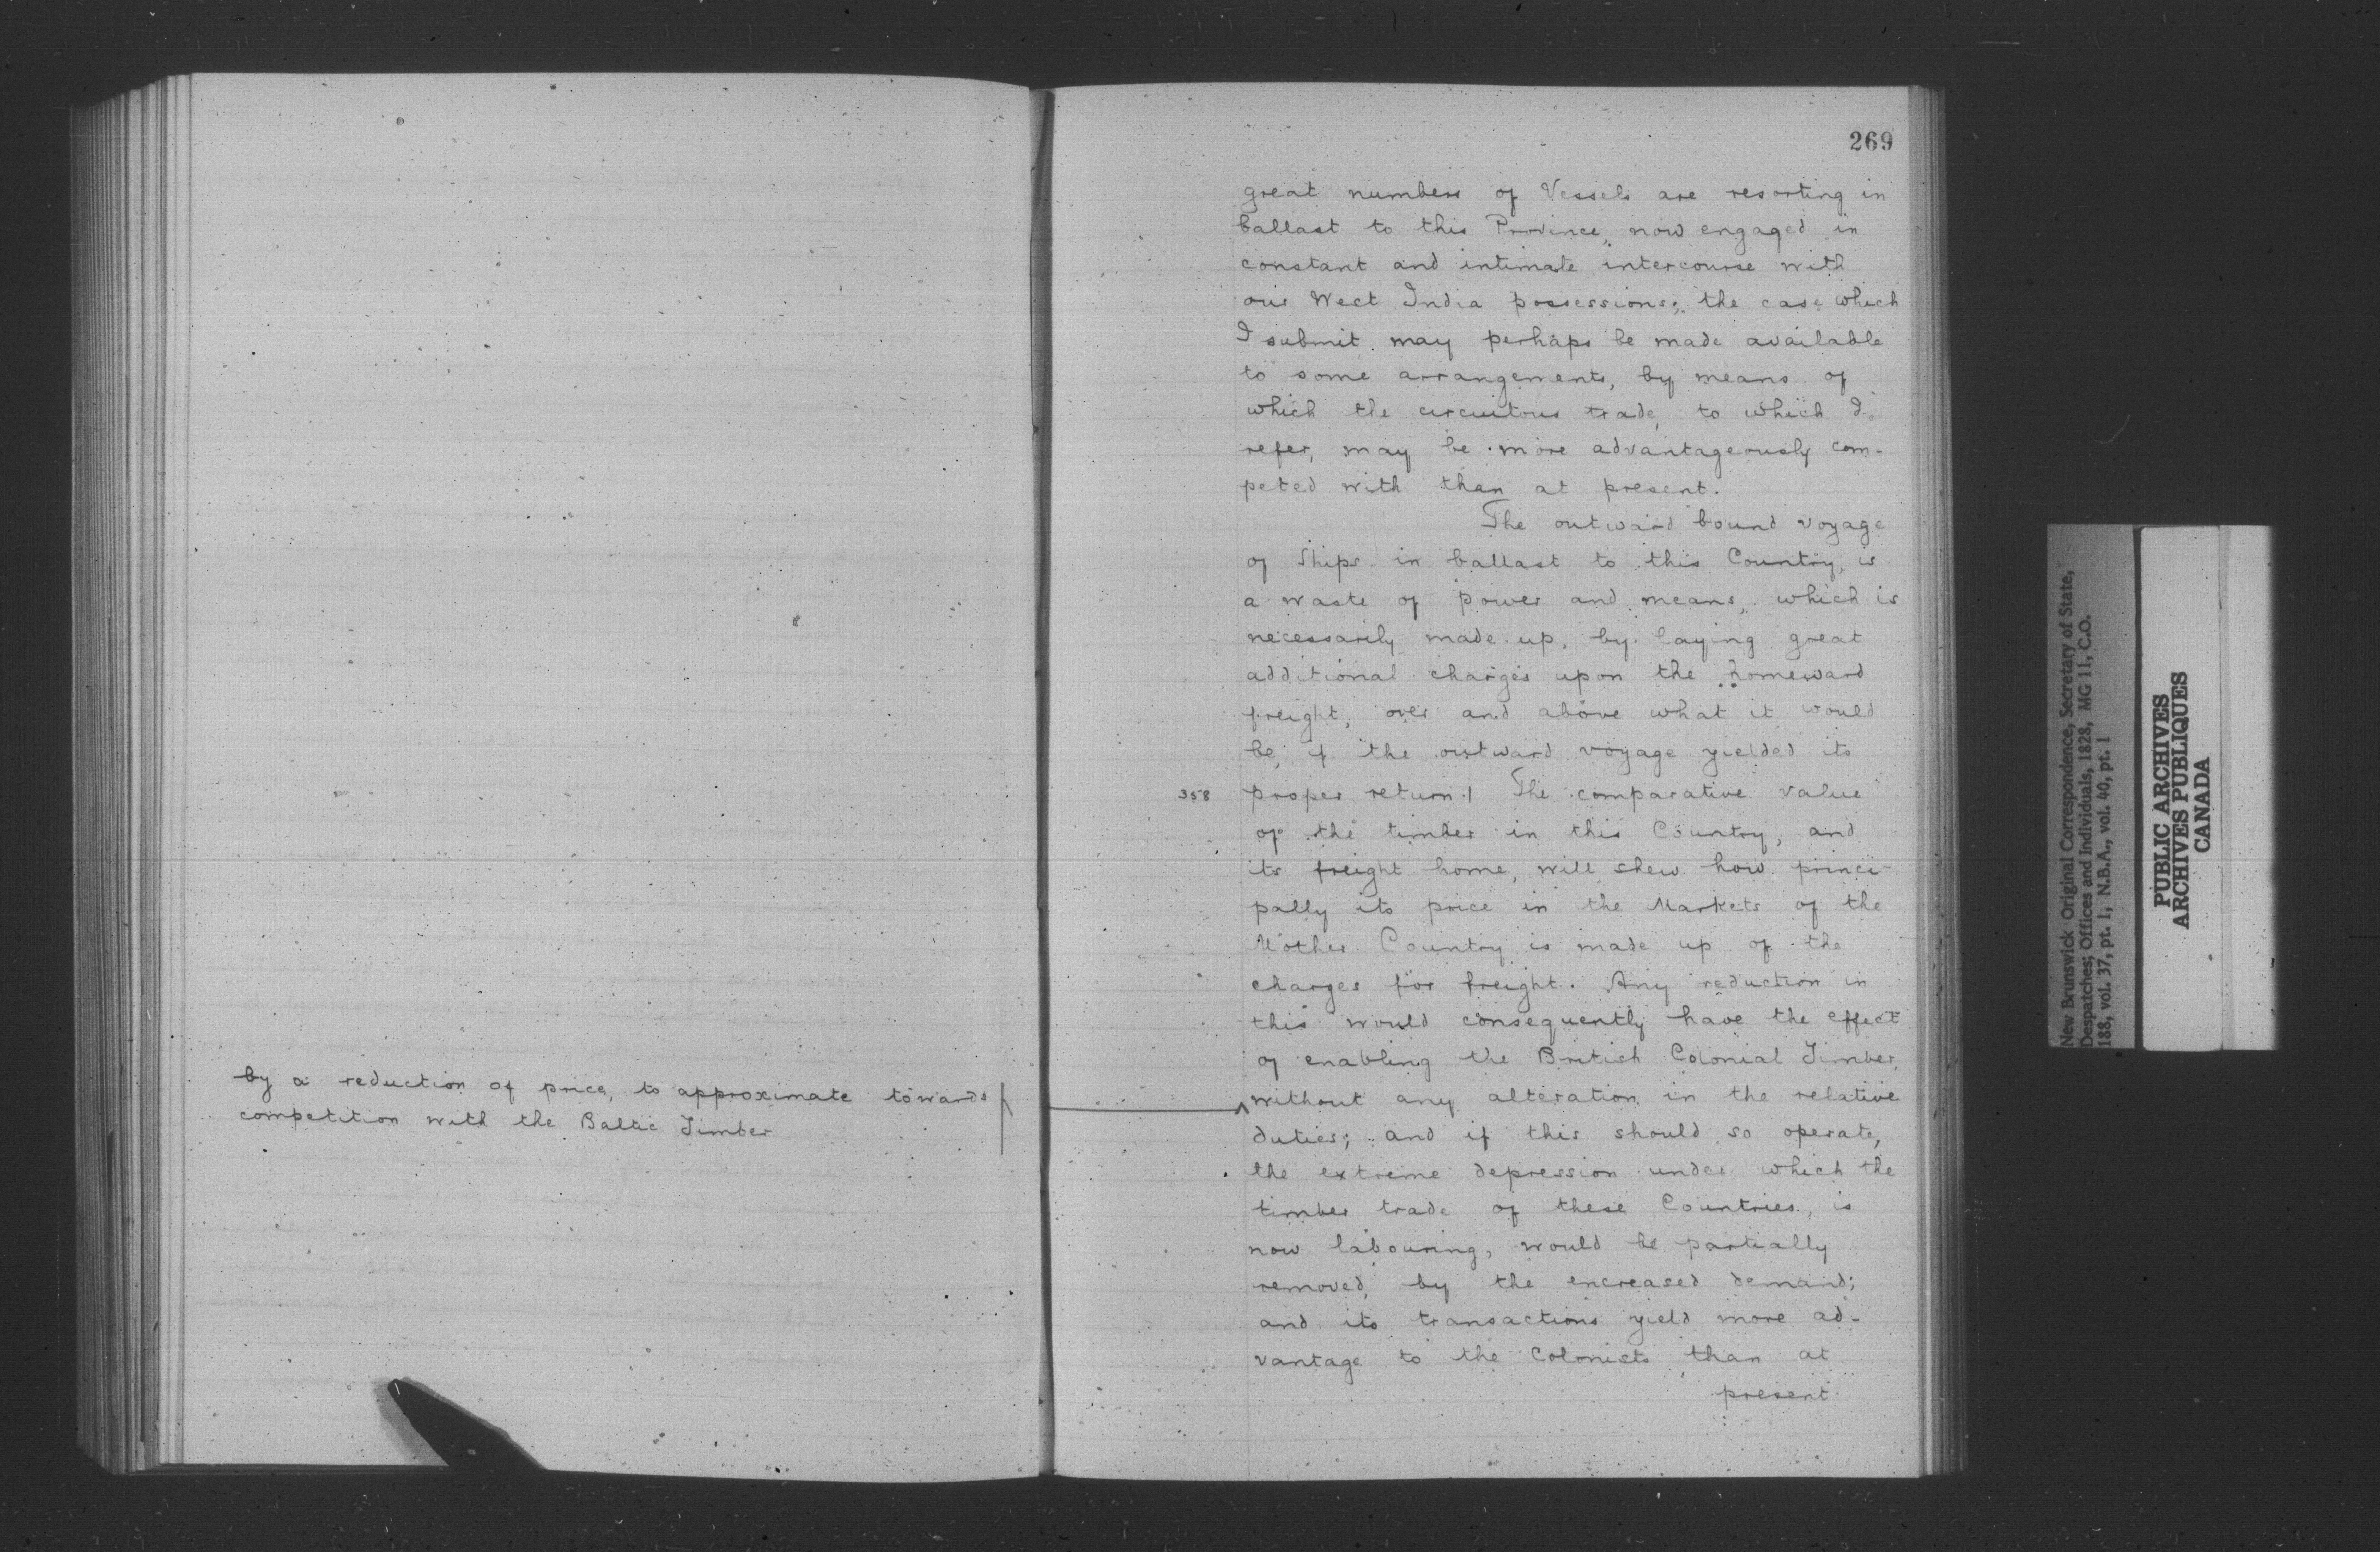 by a reduction of price, to approximate towards
competition with the Baltic Timber
269
great numbers of Vessels are resorting in
ballast to this Province, now engaged in
constant and intimate intercourse with
our West India possessions; the case which
I submit may perhaps be made available
to some arrangements, by means of
which the circuitous trade, to which I
refer, may be more advantageously com-
peted with than at present.
The outward bound voyage
of Ships in ballast to this Country, is
a waste of power and means, which is
necessarily made up, by laying great
additional charges upon the homeward
freight, over and above what it would
be, if the outward voyage yielded its
358 proper return. | The comparative value
of the timber in this Country, and
its freight home, will shew how princi-
pally its price in the Markets of the
Mother Country is made up of the
charges for freight. Any reduction in
this would consequently have the effect
of enabling the British Colonial Timber,
without any alteration in the relative
duties; and if this should so operate,
the extreme depression under which the
timber trade of these Countries, is
now labouring, would be partially
removed, by the encreased demand;
and its transactions yield more ad-
vantage to the Colonists than at
present
New Brunswick Original Correspondence, Secretary of State,
Despatches; Offices and Individuals, 1828, MG 11, C.O.
188, vol. 37, pt. 1, N.B.A., vol. 40, pt. 1
PUBLIC ARCHIVES
ARCHIVES PUBLIQUES
CANADA